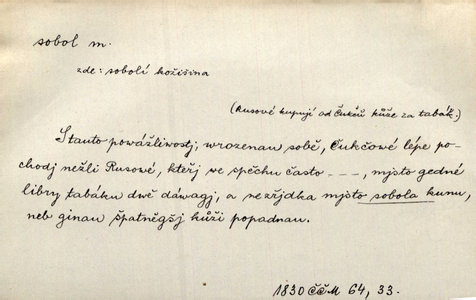 sobol m.
zde: sobolí kožišina
(Rusové kupují od Čukčů kůže za tabák.)
Stauto powážliwostj, wrozenau sobě, Čukčowé lépe po-
chodj nežli Rusowé, kteřj we spěchu často - - -, mjsto gedné
libry tabáku dwě dáwagj, a nezřjdka mjsto sobola kunu,
neb ginau špatněgšj kůži popadnau.
1830 ČČM 64, 33.